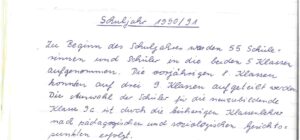 Schuljahr 1990/91
Zu Beginn des Schuljahres werden 55 Schüle-
rinnen und Schüler in die beiden 5 Klassen
aufgenommen. Die vorjährigen 8. Klassen
konnten auf drei 9. Klassen aufgeteilt werden
Die Auswahl der Schüler für die neuzubildende
Klasse 9c ist durch die bisherigen Klassenlehrer
nach pädagogischen und soziologischen Gesichts-
punkten erfolgt.